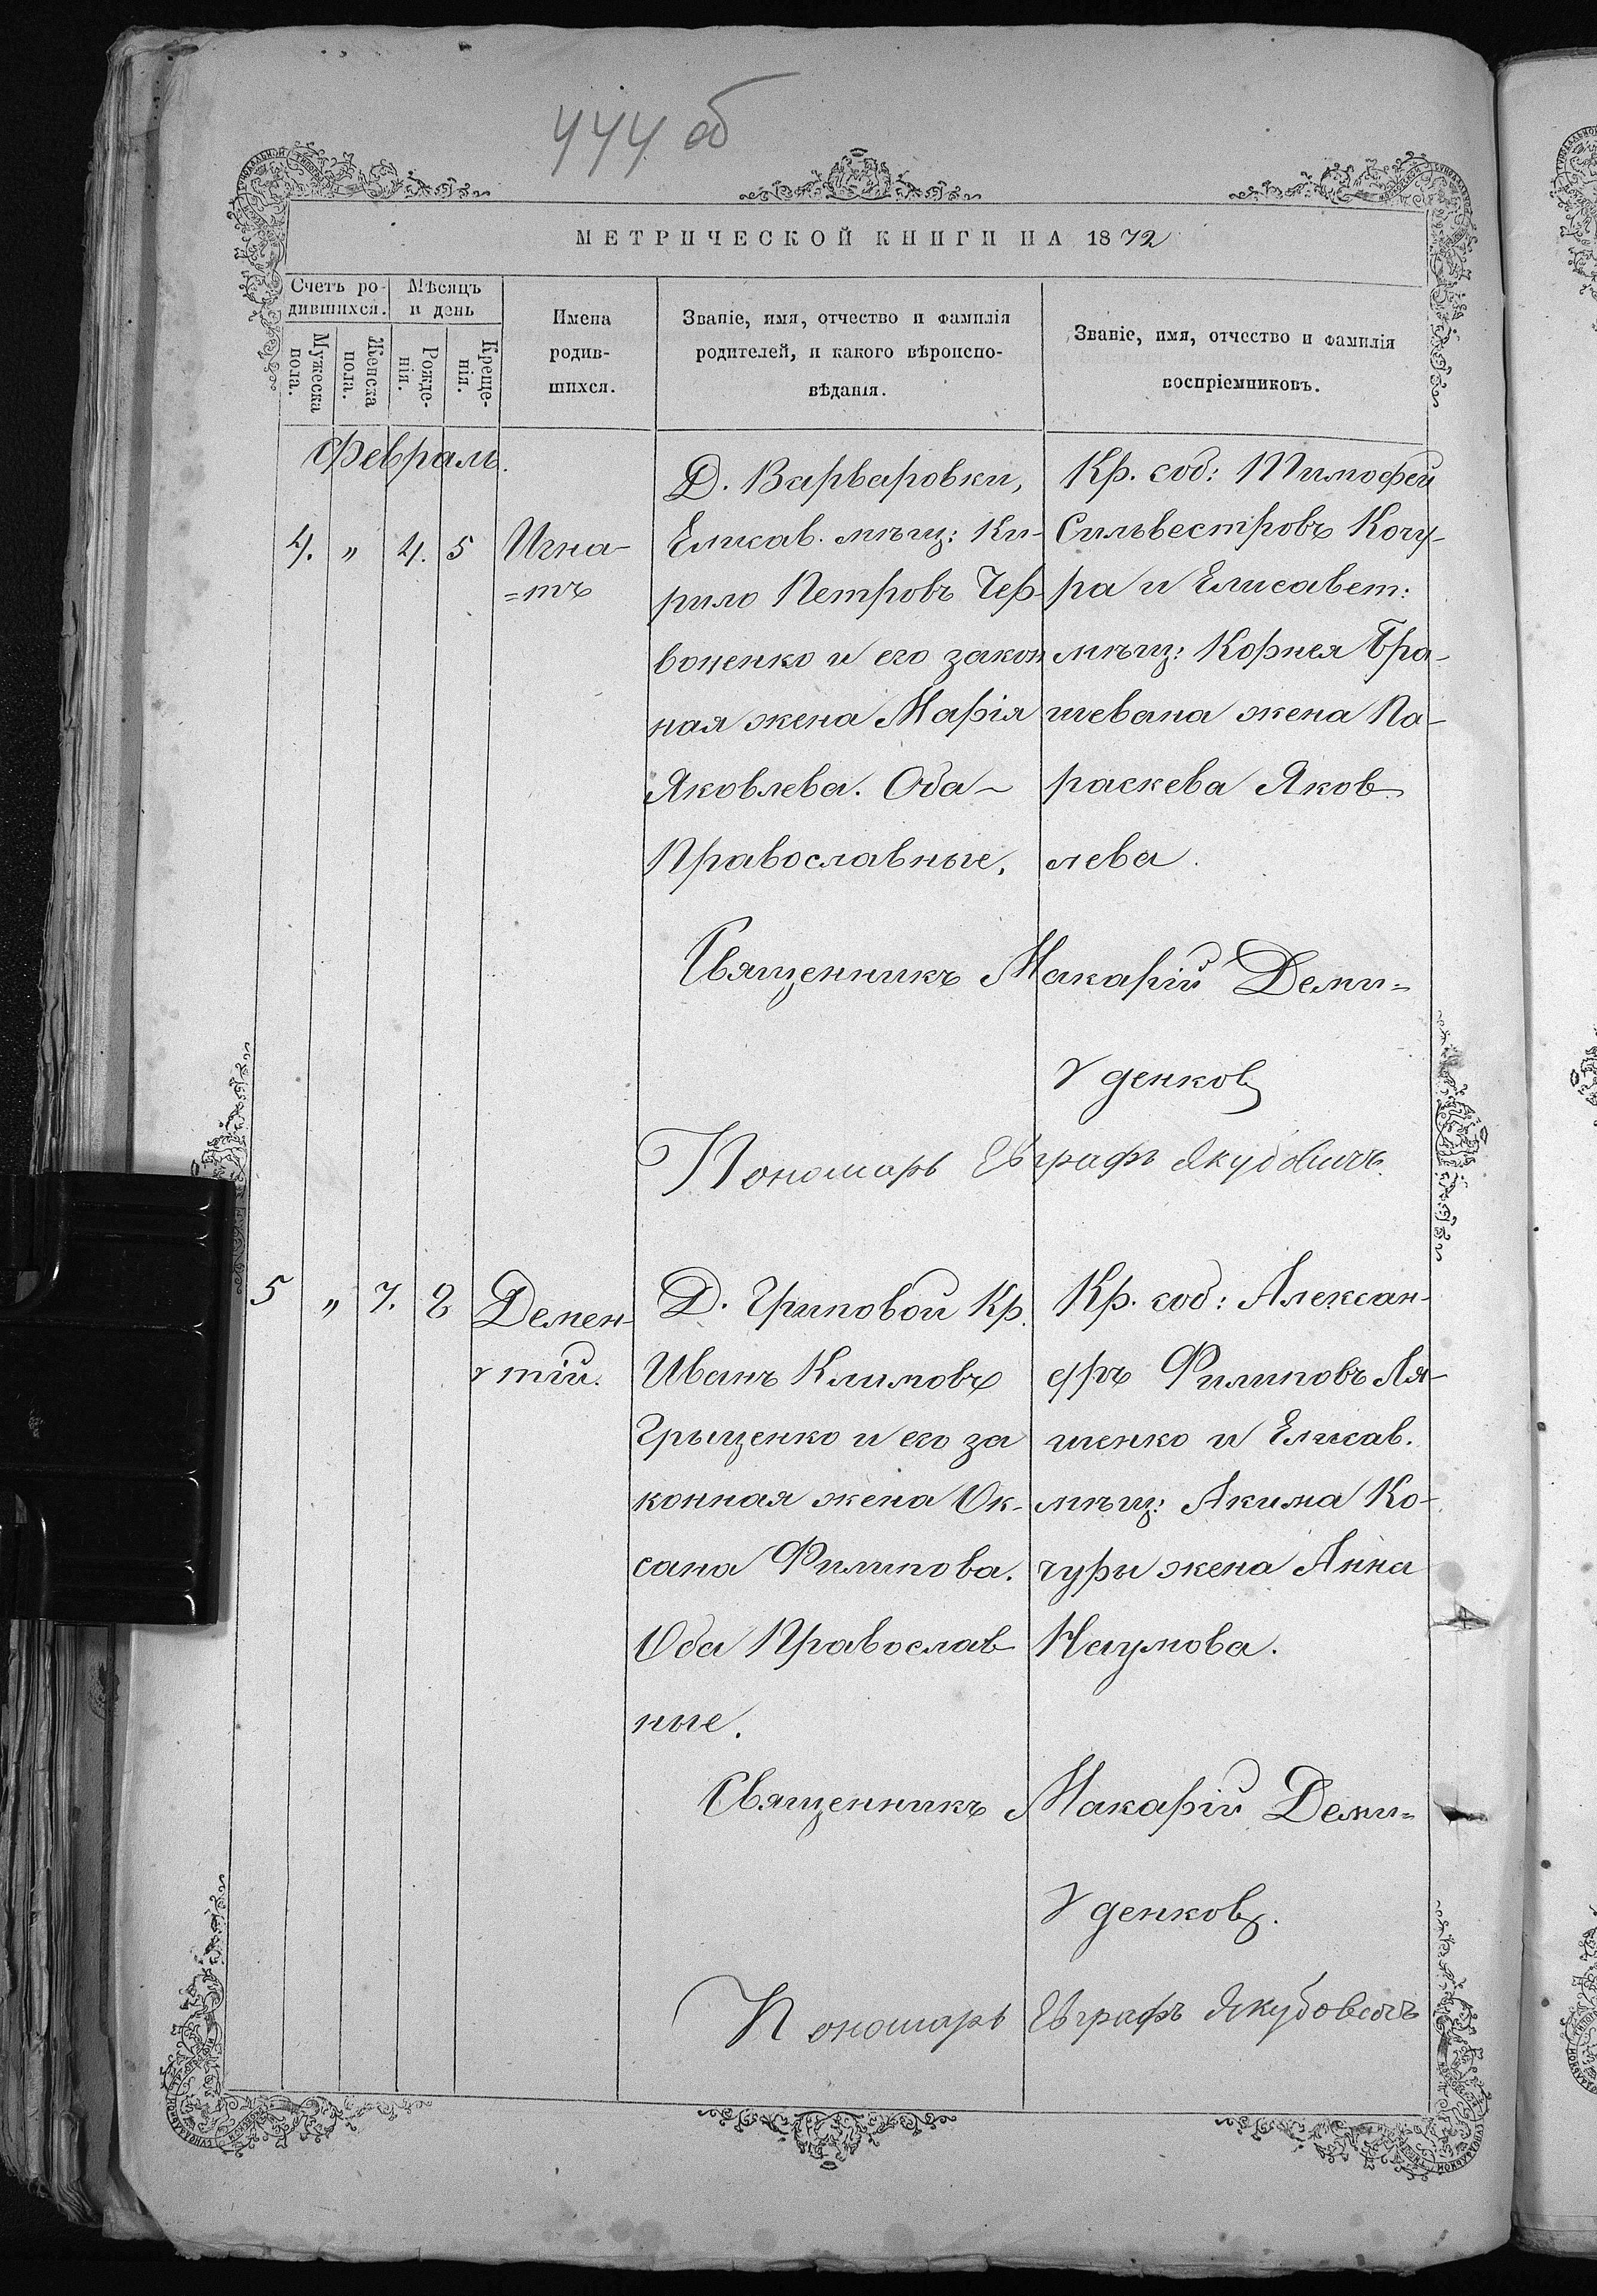 444 об
МЕТРИЧЕСКОЙ КНИГИ НА 1872
Счетъ ро-
дившихся.
Мѣсяцъ
и день
Мужеска
пола.
Женска
пола.
Рожде-
нія.
Креще-
нія.
Имена
родив-
шихся.
Званіе, имя, отчество и фамилія
родителей, и какого вѣроиспо-
вѣданія.
Званіе, имя, отчество и фамилія
воспріемниковъ.
Февраль.
4. „ 4. 5
Игна-
=тъ
Д. Варваровки,
Елисав. мѣщ: Ки-
рило Петровъ Чер-
воненко и его закон
ная жена Марія
Яковлева. Оба-
Православные.
Кр. соб: Тимофей
Сильвестровъ Кочу-
ра и Елисавет:
мѣщ: Корнея Бра-
шевана жена Па-
раскева Яков-
лева.
Священникъ Макарій Деми-
денковъ
Пономарь Евграфъ Якубовичъ.
5 „ 7. 8
Демен-
тій.
Д. Гриповой Кр.
Иванъ Климовъ
Грыщенко и его за
конная жена Ок-
сана Филипова.
Оба Православ-
ные.
Кр. соб: Алексан-
дръ Филиповъ Ля-
шенко и Елисав.
мѣщ: Акима Ко-
чуры жена Анна
Наумова.
Священникъ Макарій Деми-
денковъ.
Пономарь Евграфъ Якубовичъ